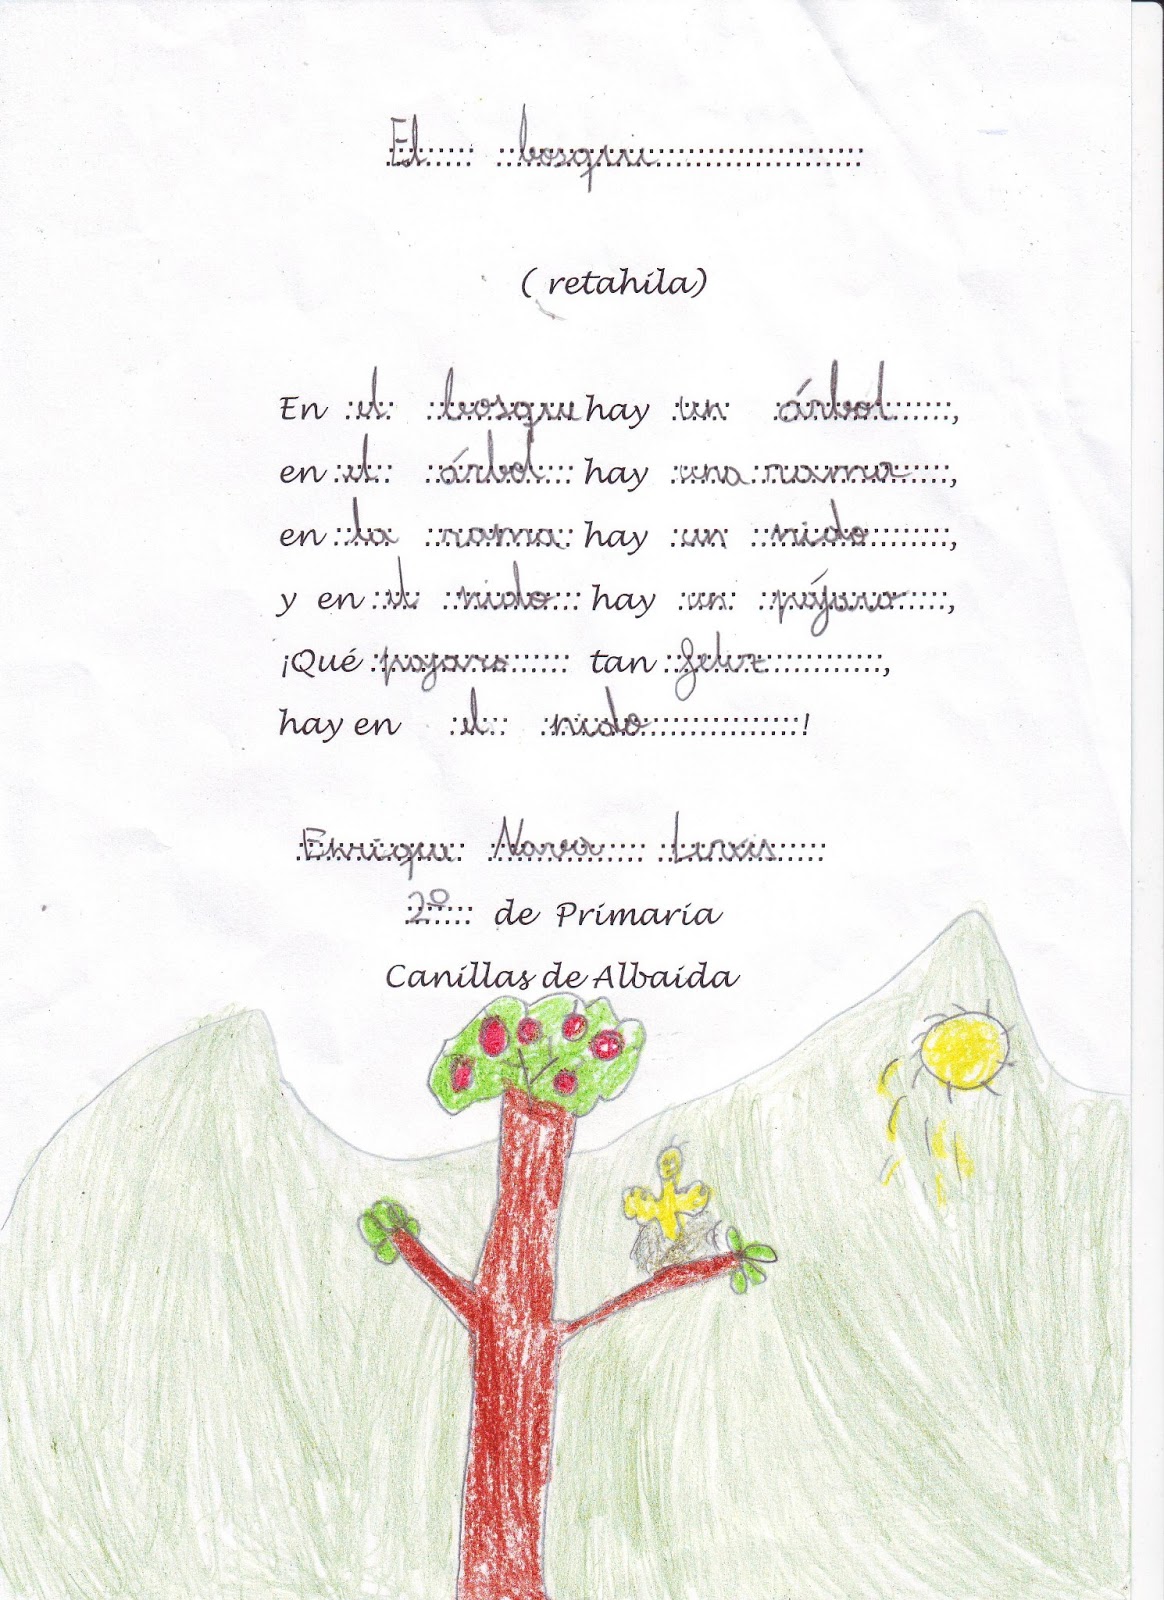 El bosque
( retahila)
En el bosque hay un árbol,
en el árbol hay una rama,
en la rama hay un nido,
y en el nido hay un pájaro,
¡Qué pajaro tan feliz,
hay en el nido!
Enrique Nava
2º de Primaria
Canillas de Albaida